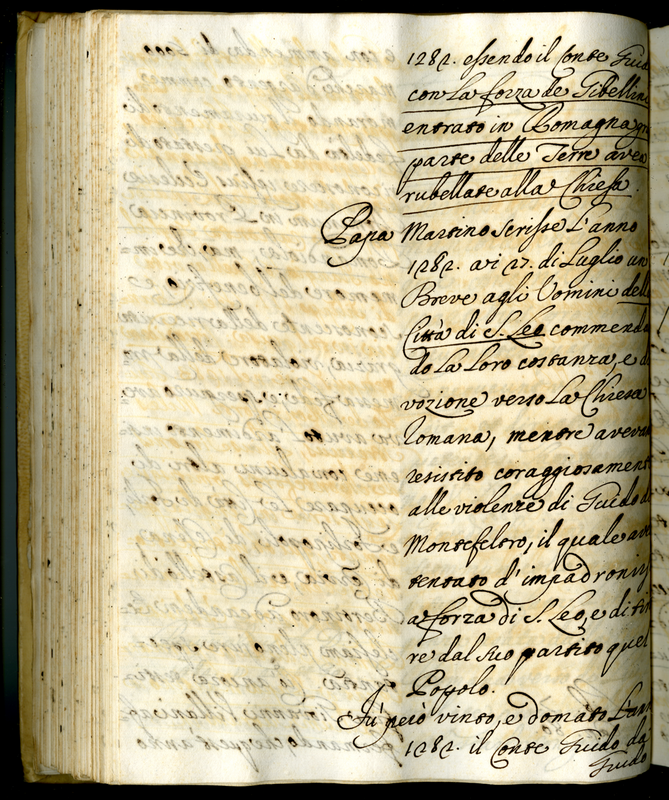 1282. essendo il Conte Guid
con La forza de Gibellini
entrato in Romagna gra
parte delle Terre avea
rubellate alla Chiesa.
Papa Martino scrisse L'anno
1282. ai 27. di Luglio un
Breve agli Uomini dell
Città di S. Leo commenda
do La Loro costanza, e d
vozione verso La Chiesa
Romana, mentre avevan
resistito coraggiosament
alle violenze di Guido d
Montefeltro, il quale ave
tentato d'impadronirs
a forza di S. Leo, e di ti
re dal suo partito quel
Popolo.
Fu però vinto, e domato L'ann
1282. il Conte Guido da
Guido